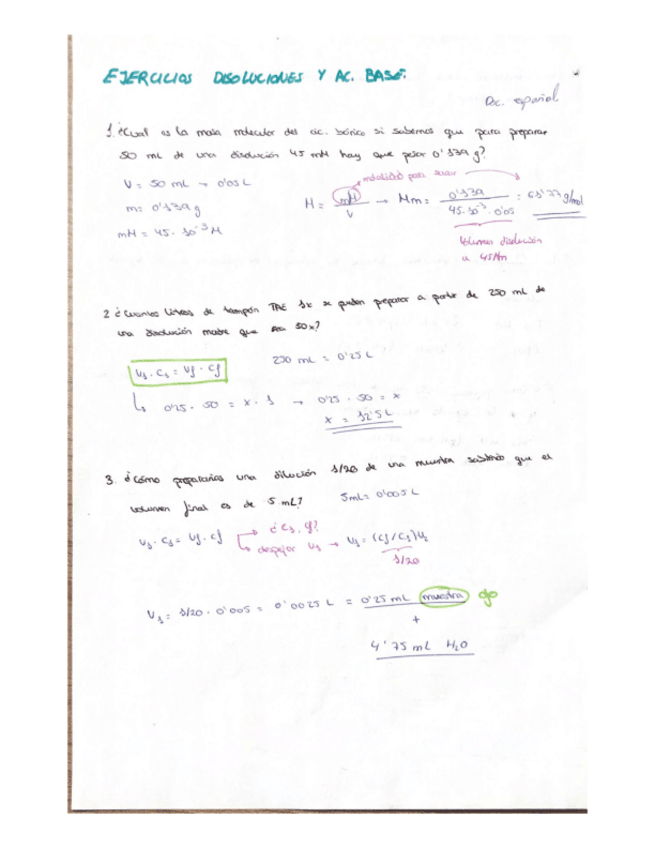 EJERCICIOS DISOLUCIONES Y AC. BASE.
Doc. español
1. ¿Cual es la masa molecular del ác. bórico si sabemos que para preparar
50 mL de una disolución 45 mM hay que pesar 0'139 g?
V = 50 mL → 0'05 L
m = 0'139 g
mM = 45 · 10⁻³ M
molaridad para
M = mM / V → Mm = 0'139 / 45·10⁻³ · 0'05 = 61'77 g/mol
Volumen disolución
a 45Mm
2 ¿Cuantos litros de tampón TAE 1x se pueden preparar a partir de 250 mL de
una disolución madre que es 50x?
V₁ · C₁ = Vf · Cf
250 mL = 0'25 L
0'25 · 50 = x · 1 → 0'25 · 50 = x
x = 12'5 L
3. ¿Cómo prepararías una dilución 1/20 de una muestra sabiendo que el
volumen final es de 5 mL?
5mL = 0'005 L
V₁ · C₁ = Vf · Cf
¿C₁, Cf?
despejar V₁ → V₁ = (Cf/C₁)V₂
1/20
V₁ = 1/20 · 0'005 = 0'0025 L = 0'25 mL muestra
+
4'75 mL H₂O